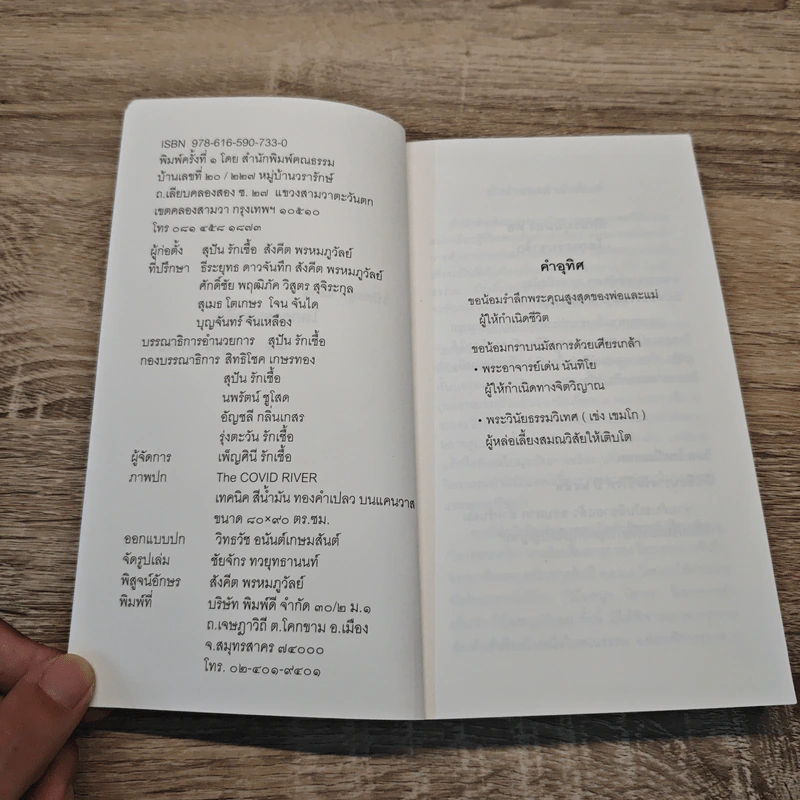 ISBN 978-616-590-733-0
พิมพ์ครั้งที่ ๑ โดย สำนักพิมพ์คณธรรม
บ้านเลขที่ ๒๐ / ๒๒๗ หมู่บ้านวรารักษ์
ถ.เลียบคลองสอง ซ. ๒๗ แขวงสามวาตะวันตก
เขตคลองสามวา กรุงเทพฯ ๑๐๕๑๐
โทร ๐๘๑ ๔๕๘ ๑๘๗๓
ผู้ก่อตั้ง สุปัน รักเชื้อ สังคีต พรหมภูวัลย์
ที่ปรึกษา ธีระยุทธ ดาวจันทึก สังคีต พรหมภูวัลย์
ศักดิ์ชัย พฤฒิภัค วิสูตร สุจิระกุล
สุเมธ โตเกษร โจน จันได
บุญจันทร์ จันเหลือง
บรรณาธิการอำนวยการ สุปัน รักเชื้อ
กองบรรณาธิการ สิทธิโชค เกษรทอง
สุปัน รักเชื้อ
นพรัตน์ ชูโสด
อัญชลี กลิ่นเกสร
รุ่งตะวัน รักเชื้อ
ผู้จัดการ เพ็ญศินี รักเชื้อ
ภาพปก The COVID RIVER
เทคนิค สีน้ำมัน ทองคำเปลว บนแคนวาส
ขนาด ๘๐×๙๐ ตร.ซม.
ออกแบบปก วิทธวัช อนันต์เกษมสันต์
จัดรูปเล่ม ชัยจักร ทวยุทธานนท์
พิสูจน์อักษร สังคีต พรหมภูวัลย์
พิมพ์ที่ บริษัท พิมพ์ดี จำกัด ๓๐/๒ ม.๑
ถ.เจษฎาวิถี ต.โคกขาม อ.เมือง
จ.สมุทรสาคร ๗๔๐๐๐
โทร. ๐๒-๔๐๑-๙๔๐๑
คำอุทิศ
ขอน้อมรำลึกพระคุณสูงสุดของพ่อและแม่
ผู้ให้กำเนิดชีวิต
ขอน้อมกราบนมัสการด้วยเศียรเกล้า
• พระอาจารย์เด่น นันทิโย
ผู้ให้กำเนิดทางจิตวิญาณ
• พระวินัยธรรมวิเทศ ( เช่ง เขมโก )
ผู้หล่อเลี้ยงสมณวิสัยให้เติบโต